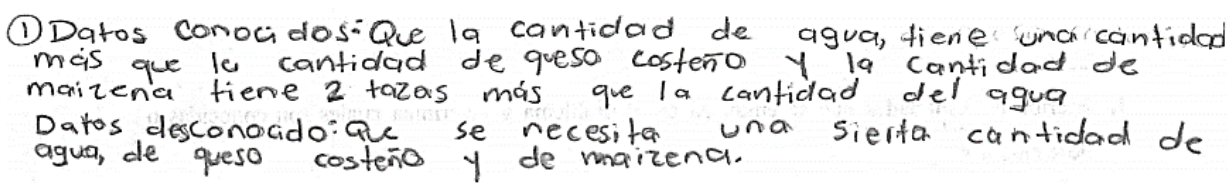 ① Datos conocidos: Que la cantidad de agua, tiene una cantidad
más que la cantidad de queso costeño y la cantidad de
maizena tiene 2 tazas más que la cantidad del agua
Datos desconocido: Que se necesita una sierta cantidad de
agua, de queso costeño y de maizena.